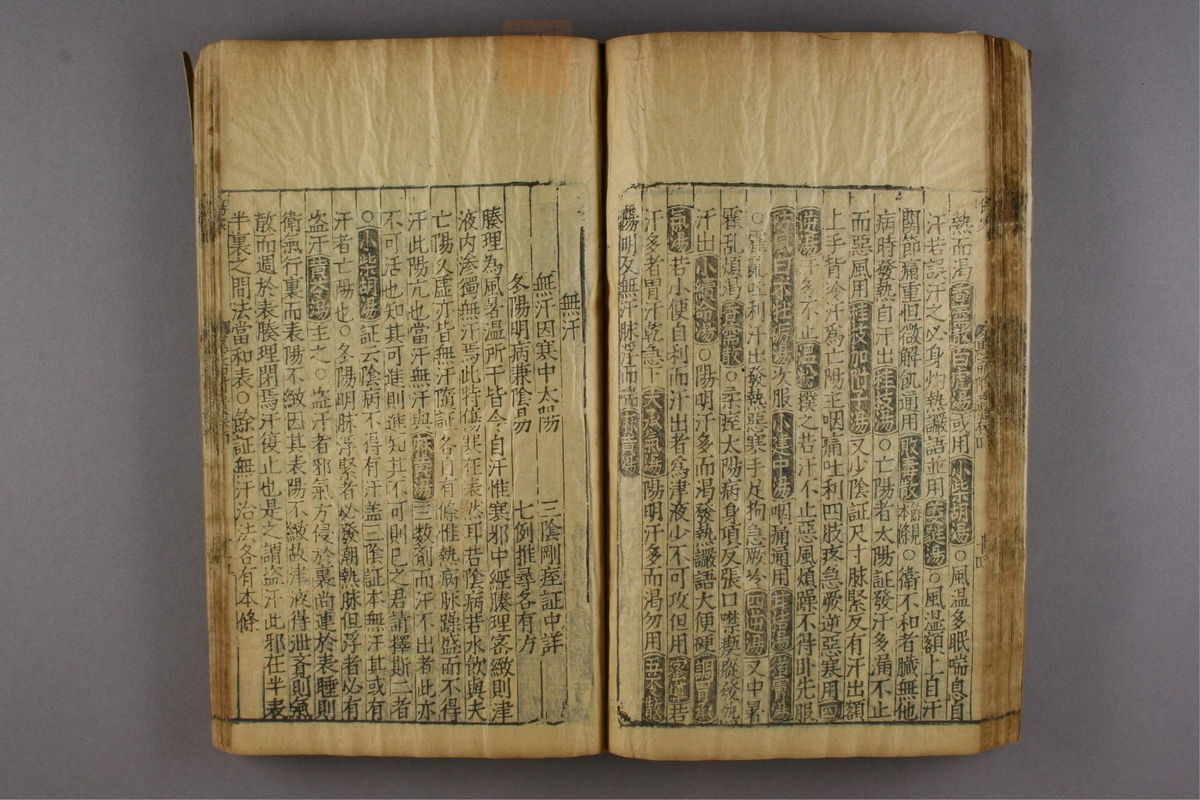 熱而渴香薷散白虎湯或用小柴胡湯○風温多眠喘息自
汗若誤汗之必身灼熱讝語並用葳蕤湯○風温額上自汗
關節痛重但微解飢通用敗毒散本條○衛不和者臟無他
病時發熱自汗出桂枝湯○亡陽者太陽証發汗多漏不止
而惡風用桂枝加附子湯又少陰証尺寸脉緊反有汗出額
上手背冷汗爲亡陽主咽痛吐利四肢疼急厥逆惡寒用四
逆湯汗多不止温粉撲之若汗不止惡風煩躁不得卧先服
防風白术牡蛎湯次服小建中湯咽痛通用
○霍亂吐利汗出發熱惡寒手足拘急厥冷四逆湯又中暑
霍乱煩渴香薷散○柔痓太陽病身項反張口噤瘈瘲發熱
汗出小續命湯○陽明汗多而渴發熱讝語大便硬調胃承
氣湯若小便自利而汗出者爲津液少不可攻但用蜜導若
汗多者胃汁乾急下大承氣湯陽明汗多而渴勿用五苓散
陽明反無汗脉浮而喘麻黄湯
無汗
無汗因寒中太陽　三陰剛痓証中詳
冬陽明病兼陰昜　七例推尋各有方
腠理為風暑温所干皆令自汗惟寒邪中經腠理宻緻則津
液内渗獨無汗焉此特傷寒在表然耳若陰病若水飲與夫
亡陽久虚亦皆無汗隨証各自有條惟熱病脉躁盛而不得
汗此陽亢也當汗無汗與麻黄湯三数劑而汗不出者此亦
不可活也知其可進則進知其不可則已之君請擇斯二者
○小柴胡湯証云陰病不得有汗盖三陰証本無汗其或有
汗者亡陽也○冬陽明脉浮緊者必發潮熱脉但浮者必有
盗汗黄芩湯主之○盗汗者邪氣方侵於裏尚連於表睡則
衛氣行裏而表陽不緻因其表陽不緻故津液得泄寤則氣
散而週於表腠理閉焉汗復止也是之謂盗汗此邪在半表
半裏之間法當和表○餘証無汗治法各有本條